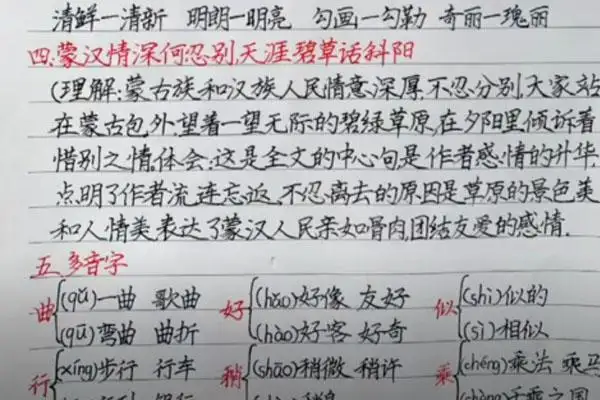 清鲜—清新 明朗—明亮 勾画—勾勒 奇丽—瑰丽
四.蒙汉情深何忍别,天涯碧草话斜阳
(理解:蒙古族和汉族人民情意深厚,不忍分别,大家站
在蒙古包外,望着一望无际的碧绿草原,在夕阳里倾诉着
惜别之情。体会:这是全文的中心句,是作者感情的升华,
点明了作者流连忘返、不忍离去的原因是草原的景色美
和人情美,表达了蒙汉人民亲如骨肉团结友爱的感情.
五.多音字
曲 (qǔ)一曲 歌曲 好 (hǎo)好像 友好 似 (shì)似的
(qū)弯曲 曲折 (hào)好客 好奇 (sì)相似
行 (xíng)步行 行车 稍 (shāo)稍微 稍许 乘 (chéng)乘法 乘马
(shèng)千乘之国